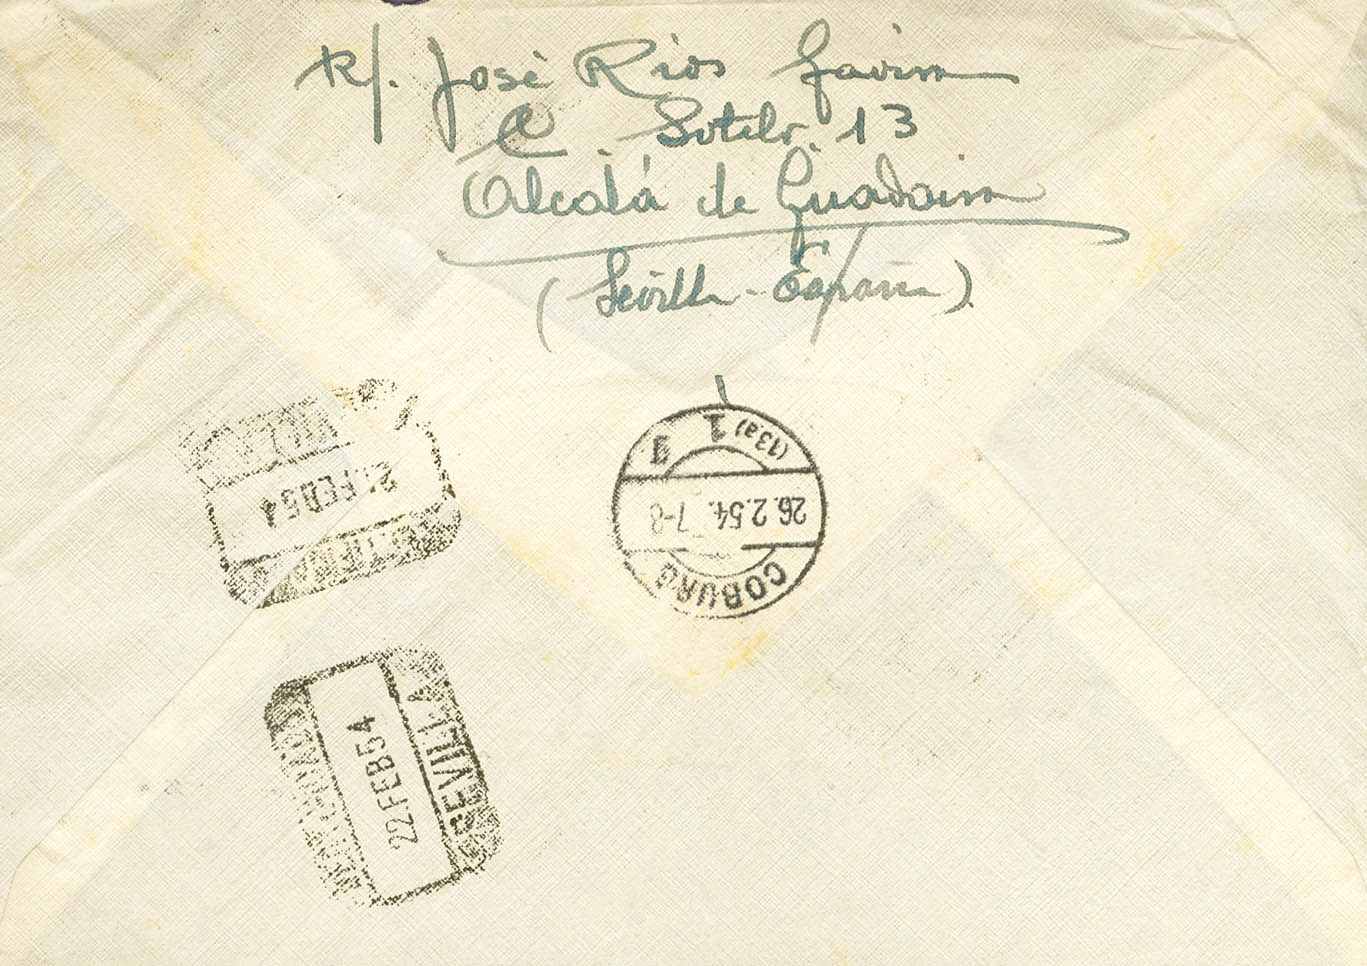 R/. José Rios Gavira
C Sotelo 13
Alcalá de Guadaira
(Sevilla - España)
21.FEB54
1 g
(13a)
26.2.54. 7-8
COBURG
22.FEB54
SEVILLA